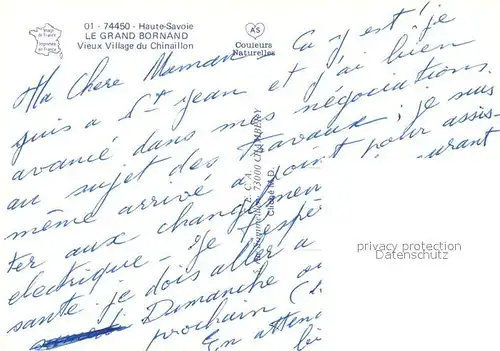 01 - 74450 - Haute-Savoie
LE GRAND BORNAND
Vieux Village du Chinaillon
Image de France
Imprimée en France
AS
Couleurs
Naturelles
Ma Chere Maman Ca y est! je
suis a St Jean et j'ai bien
avancé dans mes négociations
au sujet des travaux; je suis
même arrivé a point pour assis-
ter aux changemen courant
electrique - Je t'espér
santé. je dois aller a
Dimanche ou
prochain
En attend
E.C.A.
73000 CHAMBERY
Cliché M.D.
privacy protection
Datenschutz